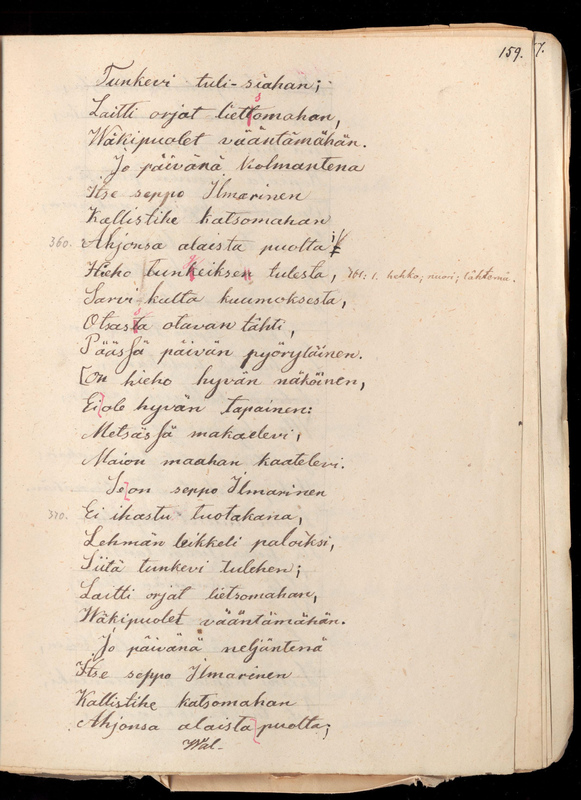 159.
7.
Tunkevi tuli-siahan;
Laitti orjat liettomahan,
Wäkipuolet vääntämähän.
Jo päivänä kolmantena
Itse seppo Ilmarinen
Kallistihe katsomahan
360. Ahjonsa alaista puolta
Hieho tunkeiksen tulesta, 361: 1. hehko; nuori; lähtemä.
Sarvi-kulta kuumoksesta,
Otsasta otavan tähti,
Päässä päivän pyöryläinen.
On hieho hyvän näköinen,
Ei ole hyvän tapainen:
Metsässä makaelevi,
Maion maahan kaatelevi.
Se on seppo Ilmarinen
370. Ei ihastu tuotakana,
Lehmän leikkeli paloiksi,
Siitä tunkevi tulehen;
Laitti orjat lietsomahan,
Wäkipuolet vääntämähän.
Jo päivänä neljäntenä
Itse seppo Ilmarinen
Kallistihe katsomahan
Ahjonsa alaista puolta;
Wal-